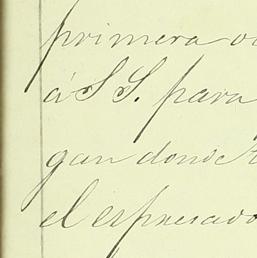 primera
á SS. para
gan donde
el espresado